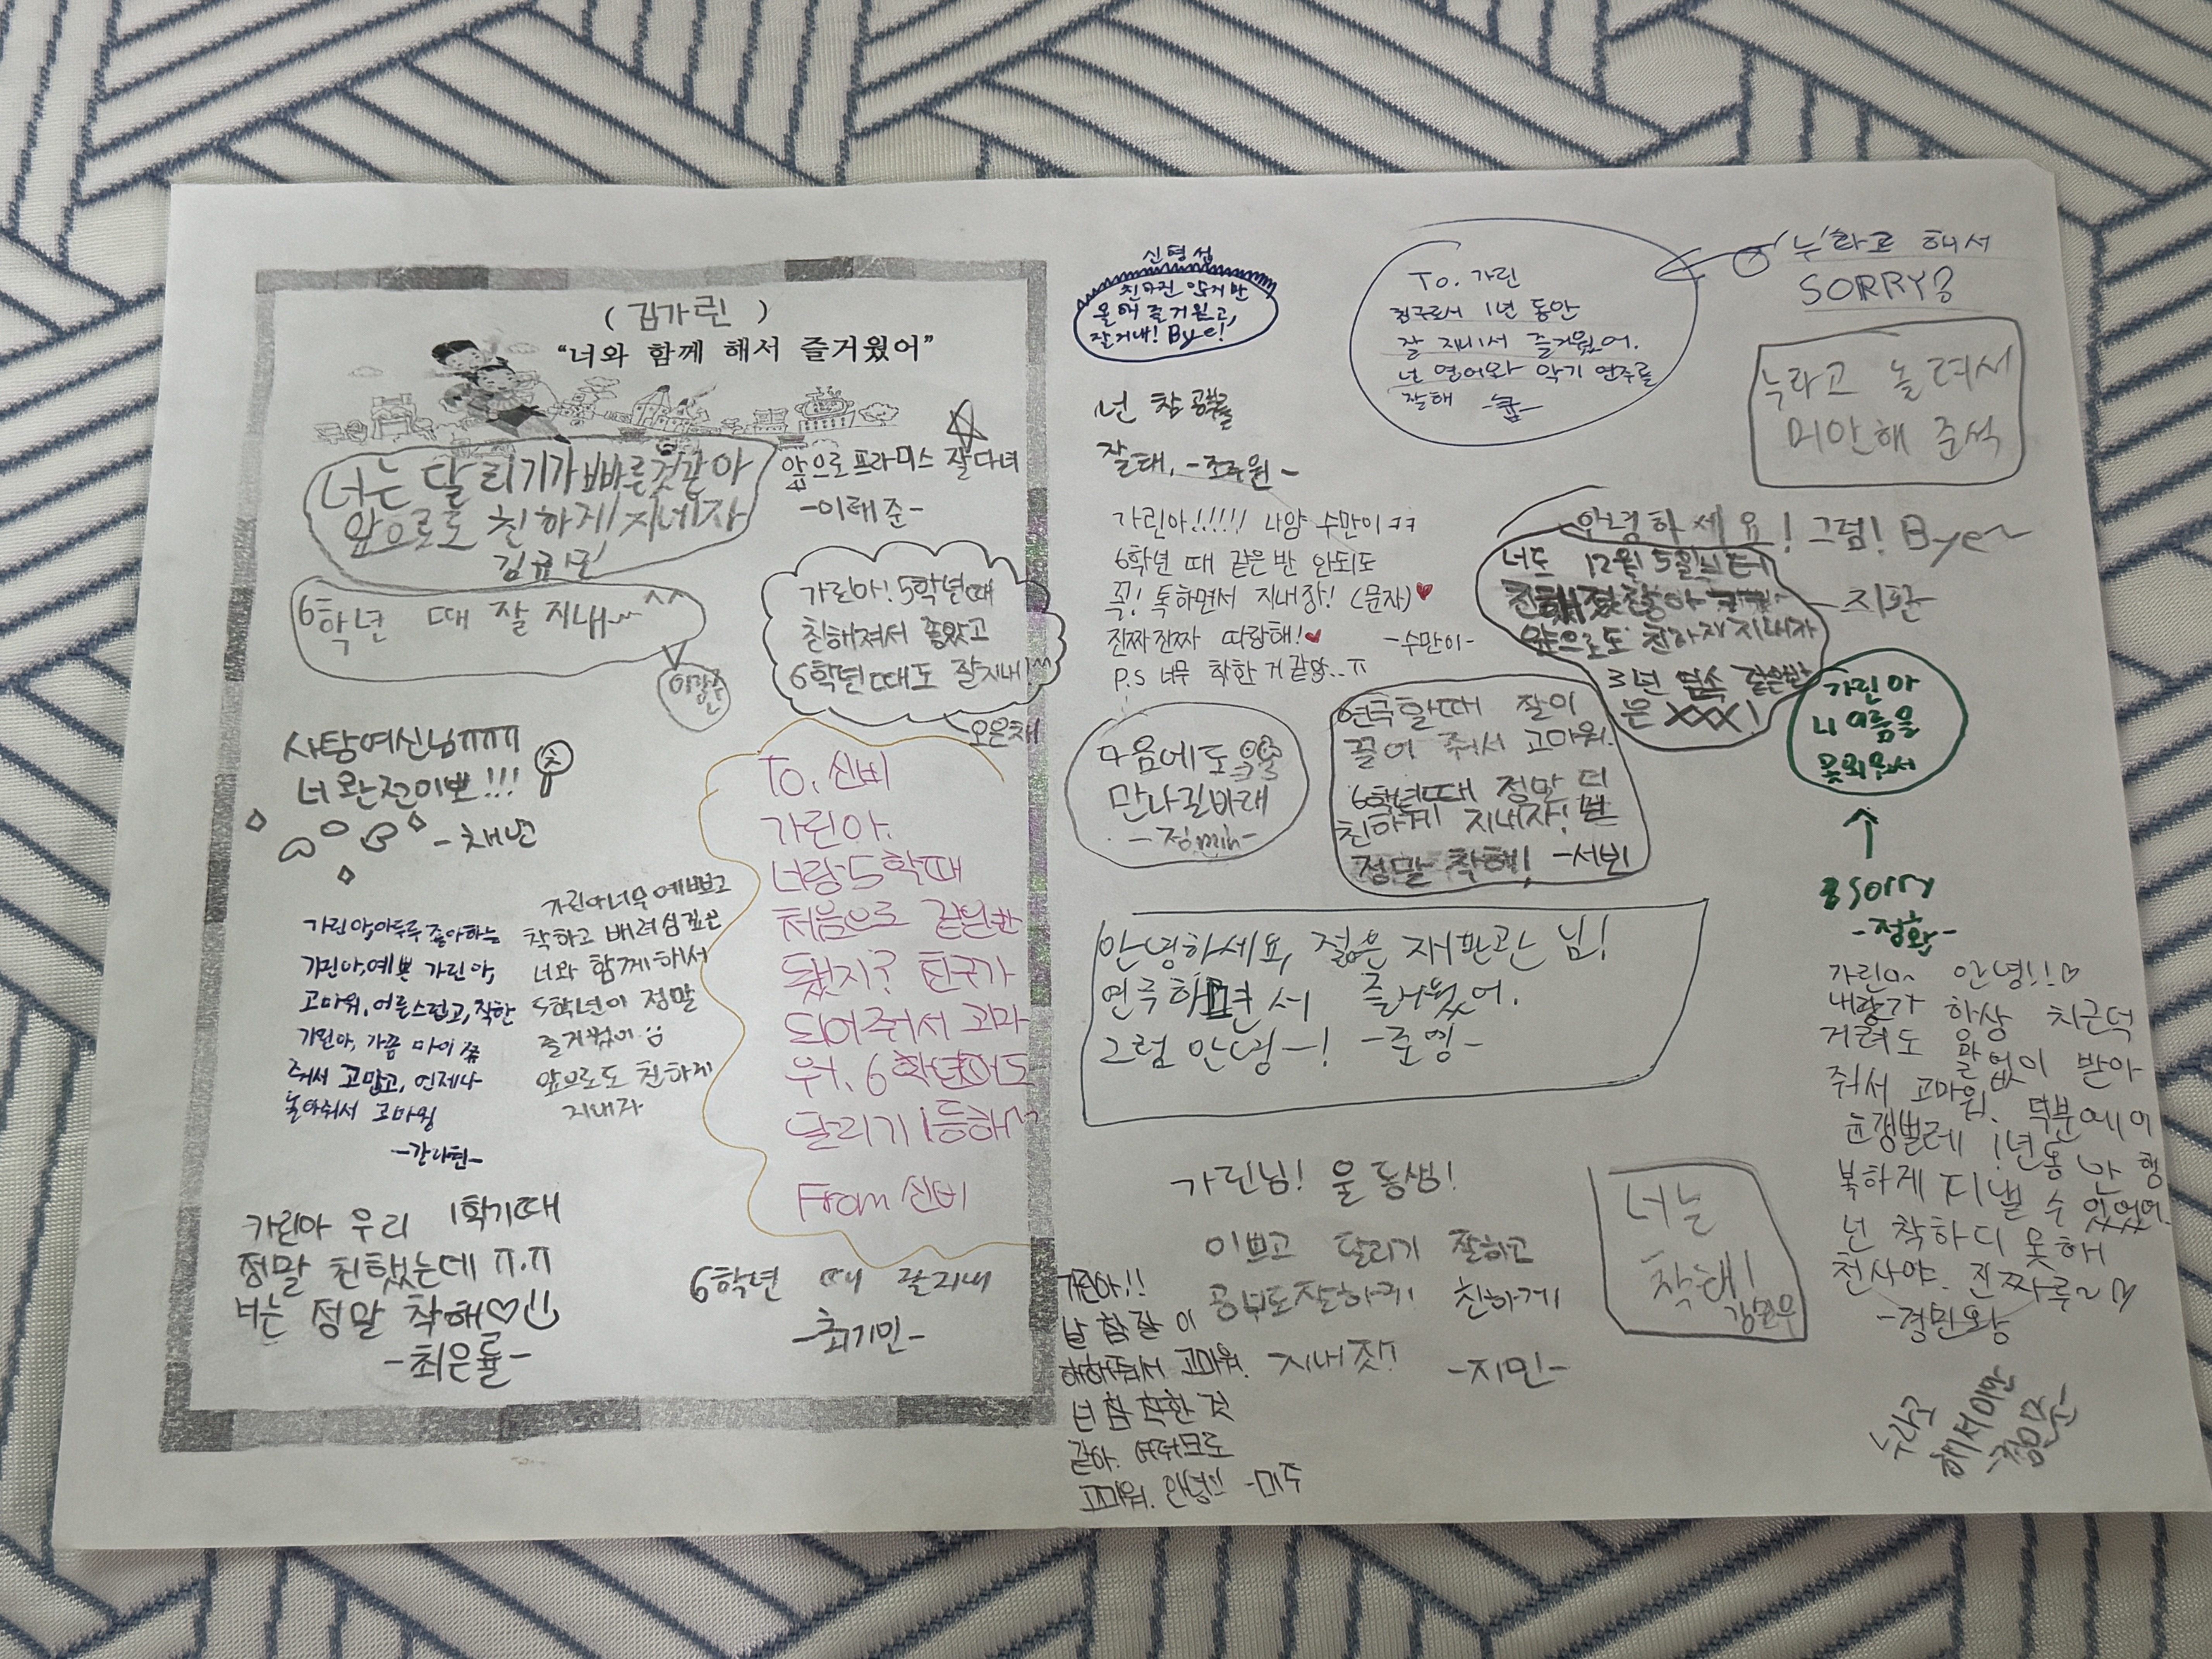 (김가린)
“너와 함께 해서 즐거웠어”
너는 달리기가 빠른것같아
앞으로도 친하게 지네자
앞으로 프라미스 잘다녀
-이래준-
6학년 때 잘 지내~^^
가린아! 5학년때
친해져서 좋았고
6학년때도 잘지내!^^
오은채
사탕여신님ㅠㅠㅠ
너 완전이쁘!!!
-채변
가린아, 예쁜 가린아,
고마워, 어른스럽고, 착한
줘서 고맙고, 언제나
놀아줘서 고마워
가린아너무예쁘고
착하고 배려심깊은
너와 함께해서
5학년이 정말
즐거웠어
앞으로도 친하게
지내자
To. 신비
가린아.
너랑5학때
처음으로 같은반
됐지? 친구가
되어줘서 고마
워. 6학년되어도
달리기 1등해~
From 신비
가린아 우리 1학기때
정말 친했는데 ㅠ.ㅠ
너는 정말 착해♡
-최은률-
6학년 때 잘지내
-최기민-
신명섭
친하진 않지만
올해 즐거웠고,
잘지내! Bye!
To. 가린
친구로서 1년 동안
잘 지내서 즐거웠어.
넌 영어와 악기 연주를
잘해
'누'라고 해서
SORRY?
누라고 놀려서
미안해 준석
넌 참 공부를
잘해, -조주원-
가린아!!!!! 나양 수만이ㅋㅋ
6학년 때 같은반 안되도
꼭! 톡하면서 지내장! (문자)♥
진짜진짜 따랑해!♥ -수만이-
P.S 너무 착한 거 같아..ㅠ
안녕하세요! 그럼! Bye~
-지환
너도 12월 5일
앞으로도 친하게지내자
3년 연속 같은반
은 XXX!
가린아
니 이름을
못외워서
↑
sorry
-정환-
다음에도
만나길바래
-정min-
연극할때 잘이
끌어 줘서 고마워.
6학년때 정말 더
친하게 지내자!
정말 착해! -서빈
안녕하세요, 젊은 재판관 님!
연극하면서 즐거웠어.
그럼 안녕~! -준영-
가린아 안녕!!♡
내가 항상 치근덕
거려도 말없이 받아
줘서 고마워. 덕분에 이
1년동안 행
복하게 지낼 수 있었어.
넌 착하디 못해
천사야. 진짜루~♡
가린님! 울 동생!
이쁘고 달리기 잘하고
공부도잘하귀 친하게
지내잣!! -지민-
너는
착해!
가린아!!
날 참 잘 이
해해줘서 고마워.
넌 참 착한 것
같아. 여러모로
고마워. 안녕!! -미주
누라고
해서미안